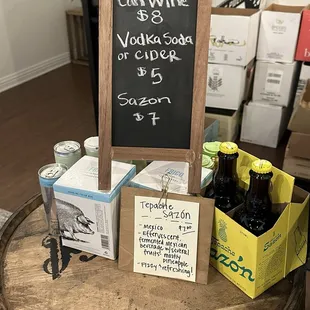 Can Wine
$8
Vodka Soda
or CIDER
$5
Sazon
$7
Tepache
Sazón
- Mexico $7.00
- Effervescent
fermented Mexican
beverage w/several
fruits mostly
pineapple
- Fizzy "refreshing!"